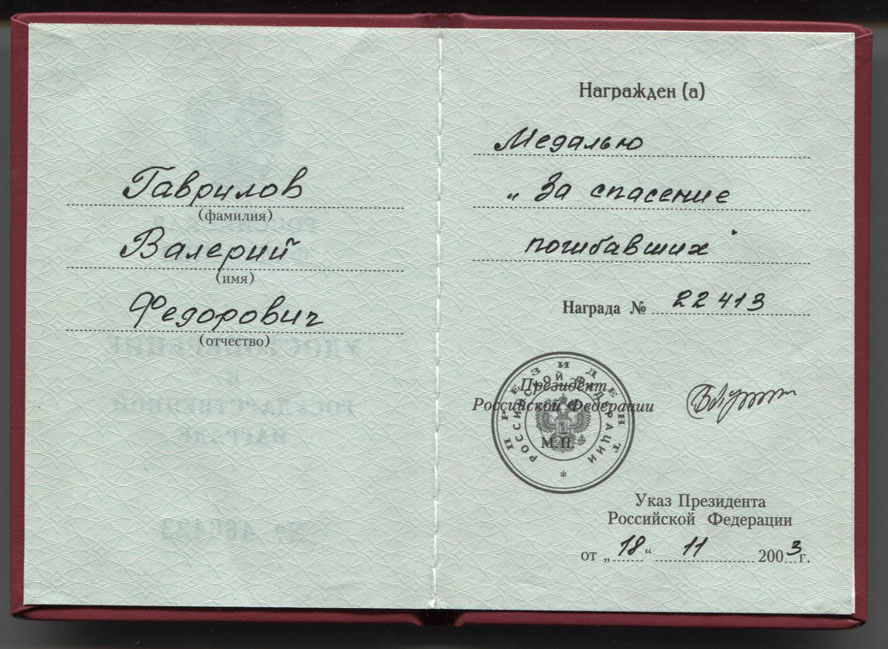 Гаврилов
(фамилия)
Валерий
(имя)
Федорович
(отчество)
Награжден (а)
Медалью
„За спасение
погибавших"
Награда № 22413
ПРЕЗИДЕНТ
РОССИЙСКОЙ ФЕДЕРАЦИИ
Президент
Российской Федерации
М.П.
Указ Президента
Российской Федерации
от „18“ 11 2003г.